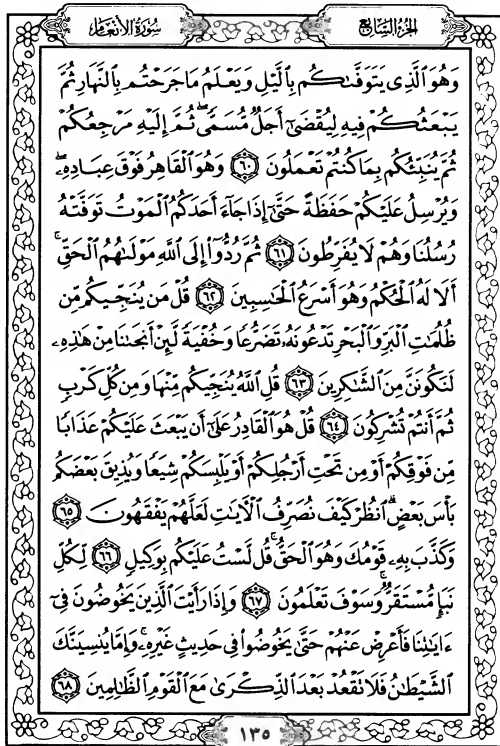 الجزء السابع
سورة الأنعام
وَهُوَ ٱلَّذِى يَتَوَفَّىٰكُم بِٱلَّيْلِ وَيَعْلَمُ مَا جَرَحْتُم بِٱلنَّهَارِ ثُمَّ
يَبْعَثُكُمْ فِيهِ لِيُقْضَىٰٓ أَجَلٌ مُّسَمًّى ۖ ثُمَّ إِلَيْهِ مَرْجِعُكُمْ
ثُمَّ يُنَبِّئُكُم بِمَا كُنتُمْ تَعْمَلُونَ ٦٠ وَهُوَ ٱلْقَاهِرُ فَوْقَ عِبَادِهِۦ ۖ
وَيُرْسِلُ عَلَيْكُمْ حَفَظَةً حَتَّىٰٓ إِذَا جَآءَ أَحَدَكُمُ ٱلْمَوْتُ تَوَفَّتْهُ
رُسُلُنَا وَهُمْ لَا يُفَرِّطُونَ ٦١ ثُمَّ رُدُّوٓا۟ إِلَى ٱللَّهِ مَوْلَىٰهُمُ ٱلْحَقِّ ۚ
أَلَا لَهُ ٱلْحُكْمُ وَهُوَ أَسْرَعُ ٱلْحَٰسِبِينَ ٦٢ قُلْ مَن يُنَجِّيكُم مِّن
ظُلُمَٰتِ ٱلْبَرِّ وَٱلْبَحْرِ تَدْعُونَهُۥ تَضَرُّعًا وَخُفْيَةً لَّئِنْ أَنجَىٰنَا مِنْ هَٰذِهِۦ
لَنَكُونَنَّ مِنَ ٱلشَّٰكِرِينَ ٦٣ قُلِ ٱللَّهُ يُنَجِّيكُم مِّنْهَا وَمِن كُلِّ كَرْبٍ
ثُمَّ أَنتُمْ تُشْرِكُونَ ٦٤ قُلْ هُوَ ٱلْقَادِرُ عَلَىٰٓ أَن يَبْعَثَ عَلَيْكُمْ عَذَابًا
مِّن فَوْقِكُمْ أَوْ مِن تَحْتِ أَرْجُلِكُمْ أَوْ يَلْبِسَكُمْ شِيَعًا وَيُذِيقَ بَعْضَكُم
بَأْسَ بَعْضٍ ۗ ٱنظُرْ كَيْفَ نُصَرِّفُ ٱلْءَايَٰتِ لَعَلَّهُمْ يَفْقَهُونَ ٦٥
وَكَذَّبَ بِهِۦ قَوْمُكَ وَهُوَ ٱلْحَقُّ ۚ قُل لَّسْتُ عَلَيْكُم بِوَكِيلٍ ٦٦ لِّكُلِّ
نَبَإٍ مُّسْتَقَرٌّ ۚ وَسَوْفَ تَعْلَمُونَ ٦٧ وَإِذَا رَأَيْتَ ٱلَّذِينَ يَخُوضُونَ فِىٓ
ءَايَٰتِنَا فَأَعْرِضْ عَنْهُمْ حَتَّىٰ يَخُوضُوا۟ فِى حَدِيثٍ غَيْرِهِۦ ۚ وَإِمَّا يُنسِيَنَّكَ
ٱلشَّيْطَٰنُ فَلَا تَقْعُدْ بَعْدَ ٱلذِّكْرَىٰ مَعَ ٱلْقَوْمِ ٱلظَّٰلِمِينَ ٦٨
١٣٥